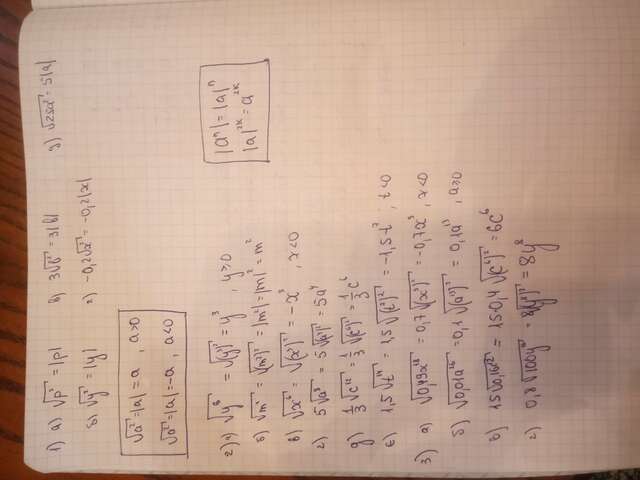 1) а) √p² = |p|   в) 3√b² = 3|b|   д) √25a² = 5|a|
б) √y² = |y|   г) -0,2√x² = -0,2|x|
√a² = |a| = a , a≥0
√a² = |a| = -a , a<0
|aⁿ| = |a|ⁿ
|a|²ᵏ = a²ᵏ
2) а) √y⁶ = √(y³)² = y³ , y≥0
б) √m⁴ = √(m²)² = |m²| = |m|² = m²
в) √x⁶ = √(x³)² = -x³ , x<0
г) 5√a⁸ = 5√(a⁴)² = 5a⁴
д) 1/3 √c¹² = 1/3 √(c⁶)² = 1/3 c⁶
е) 1,5√t¹⁴ = 1,5√(t⁷)² = -1,5t⁷ , t<0
3) а) √0,49x¹⁸ = 0,7√(x⁹)² = -0,7x⁹ , x<0
б) √0,01a²⁶ = 0,1√(a¹³)² = 0,1a¹³ , a≥0
в) 15√0,16c¹² = 15·0,4√(c⁶)² = 6c⁶
г) 0,8√100y¹⁶ = 8√(y⁸)² = 8y⁸